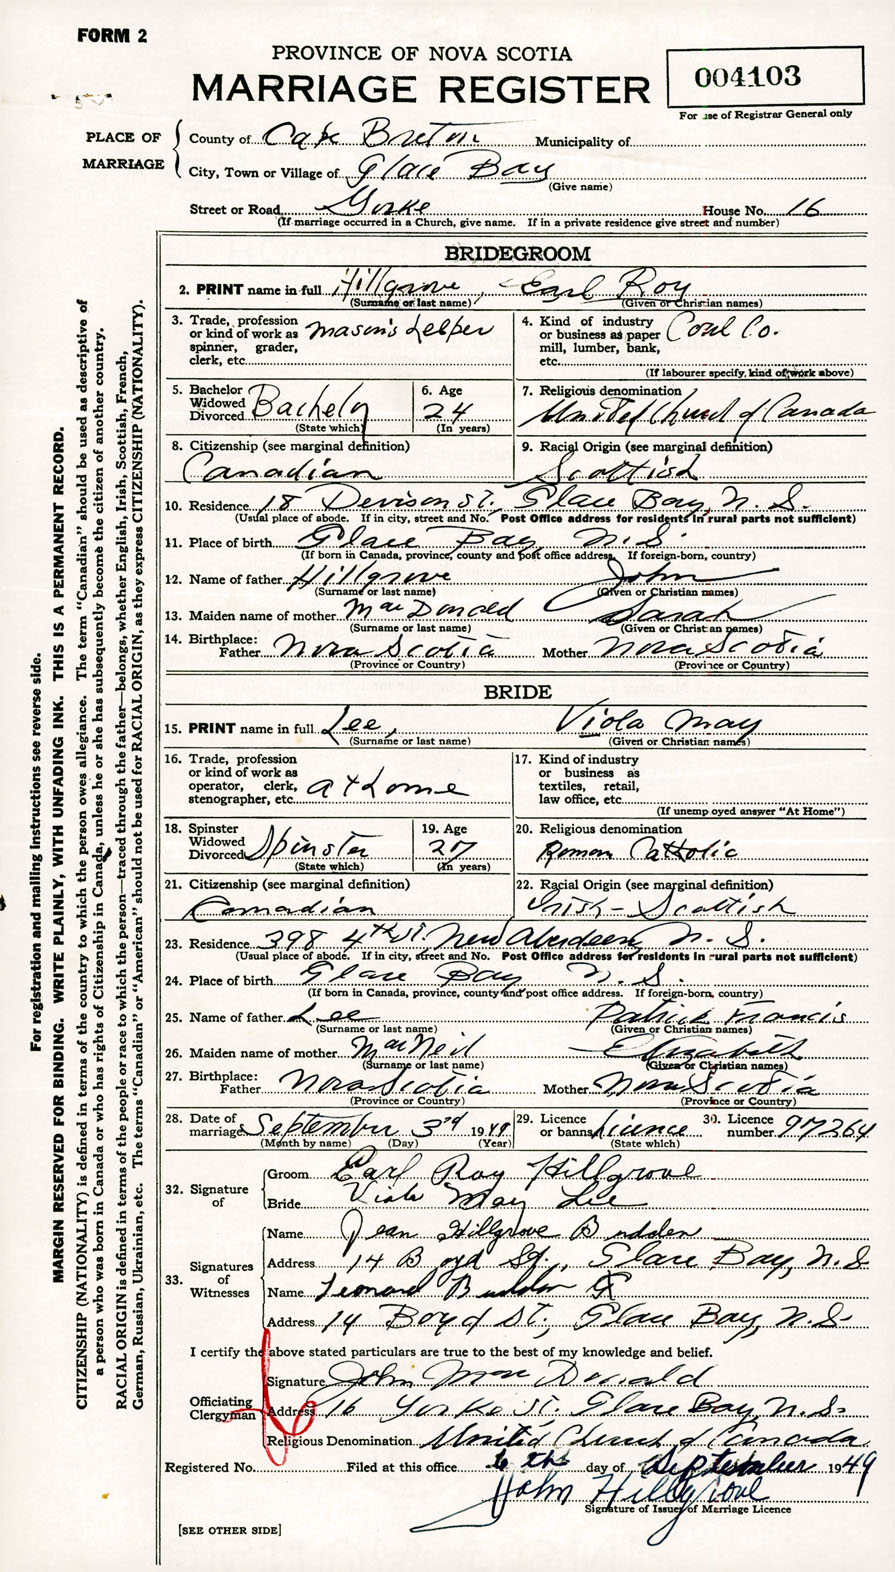 FORM 2
PROVINCE OF NOVA SCOTIA
MARRIAGE REGISTER
004103
For use of Registrar General only
PLACE OF MARRIAGE
County of Cape Breton Municipality of
City, Town or Village of Glace Bay
(Give name)
Street or Road Yorke House No. 16
(If marriage occurred in a Church, give name. If in a private residence give street and number)
BRIDEGROOM
2. PRINT name in full Hillgrove, Earl Roy
(Surname or last name) (Given or Christian names)
3. Trade, profession or kind of work as spinner, grader, clerk, etc. Mason's Helper
4. Kind of industry or business as paper mill, lumber, bank, etc. Coal Co.
(If labourer specify, kind of work above)
5. Bachelor Widowed Divorced Bachelor
(State which)
6. Age 24
(In years)
7. Religious denomination
United Church of Canada
8. Citizenship (see marginal definition)
Canadian
9. Racial Origin (see marginal definition)
Scottish
10. Residence 18 St., Glace Bay, N. S.
(Usual place of abode. If in city, street and No. Post Office address for residents in rural parts not sufficient)
11. Place of birth Glace Bay, N. S.
(If born in Canada, province, county and post office address. If foreign-born, country)
12. Name of father Hillgrove John
(Surname or last name) (Given or Christian names)
13. Maiden name of mother MacDonald Sarah
(Surname or last name) (Given or Christian names)
14. Birthplace:
Father Nova Scotia Mother Nova Scotia
(Province or Country) (Province or Country)
BRIDE
15. PRINT name in full Lee, Viola May
(Surname or last name) (Given or Christian names)
16. Trade, profession or kind of work as operator, clerk, stenographer, etc. At Home
17. Kind of industry or business as textiles, retail, law office, etc.
(If unemployed answer "At Home")
18. Spinster Widowed Divorced Spinster
(State which)
19. Age 27
(In years)
20. Religious denomination
Roman Catholic
21. Citizenship (see marginal definition)
Canadian
22. Racial Origin (see marginal definition)
Irish-Scottish
23. Residence 398 4th St., New Aberdeen, N. S.
(Usual place of abode. If in city, street and No. Post Office address for residents in rural parts not sufficient)
24. Place of birth Glace Bay N. S.
(If born in Canada, province, county and post office address. If foreign-born, country)
25. Name of father Lee Patrick Francis
(Surname or last name) (Given or Christian names)
26. Maiden name of mother MacNeil Elizabeth
(Surname or last name) (Given or Christian names)
27. Birthplace:
Father Nova Scotia Mother Nova Scotia
(Province or Country) (Province or Country)
28. Date of marriage September 3rd 1949
(Month by name) (Day) (Year)
29. Licence or banns licence
(State which)
30. Licence number 97264
32. Signature of
Groom Earl Roy Hillgrove
Bride Viola May Lee
33. Signatures of Witnesses
Name Jean Hillgrove Budden
Address 14 Boyd St., Glace Bay, N. S.
Name Leonard Budden
Address 14 Boyd St., Glace Bay, N. S.
I certify the above stated particulars are true to the best of my knowledge and belief.
Officiating Clergyman
Signature John MacDonald
Address 16 Yorke St. Glace Bay, N. S.
Religious Denomination United Church of Canada
Registered No. Filed at this office 6th day of September 1949
John Hillgrove
Signature of Issuer of Marriage Licence
[SEE OTHER SIDE]
For registration and mailing instructions see reverse side.
MARGIN RESERVED FOR BINDING. WRITE PLAINLY, WITH UNFADING INK. THIS IS A PERMANENT RECORD.
CITIZENSHIP (NATIONALITY) is defined in terms of the country to which the person owes allegiance. The term "Canadian" should be used as descriptive of
a person who was born in Canada or who has rights of Citizenship in Canada, unless he or she has subsequently become the citizen of another country.
RACIAL ORIGIN is defined in terms of the people or race to which the person—traced through the father—belongs, whether English, Irish, Scottish, French,
German, Russian, Ukrainian, etc. The terms "Canadian" or "American" should not be used for RACIAL ORIGIN, as they express CITIZENSHIP (NATIONALITY).